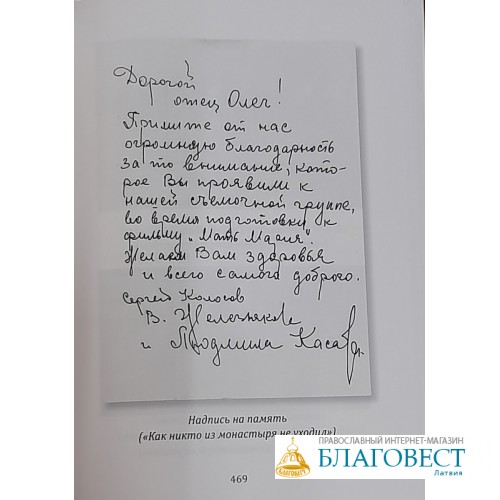 Дорогой
отец Олег!
Примите от нас
огромную благодарность
за то внимание, кото-
рое Вы проявили к
нашей съемочной группе,
во время подготовки к
фильму „Мать Мария".
Желаем Вам здоровья
и всего самого доброго.
Сергей Колосов
В. Железняков
и Людмила Касат
Надпись на память
(«Как никто из монастыря не уходил»)
469
ПРАВОСЛАВНЫЙ ИНТЕРНЕТ-МАГАЗИН
БЛАГОВЕСТ
Латвия